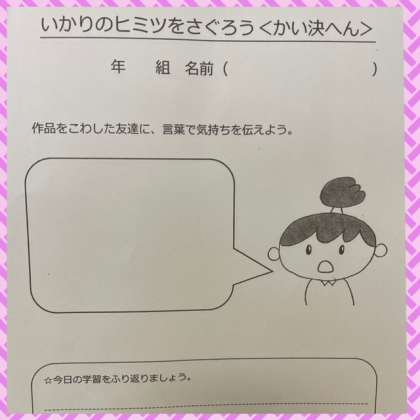 いかりのヒミツをさぐろう＜かい決へん＞
年　組　名前（　　　　　　　　）
作品をこわした友達に、言葉で気持ちを伝えよう。
☆今日の学習をふり返りましょう。